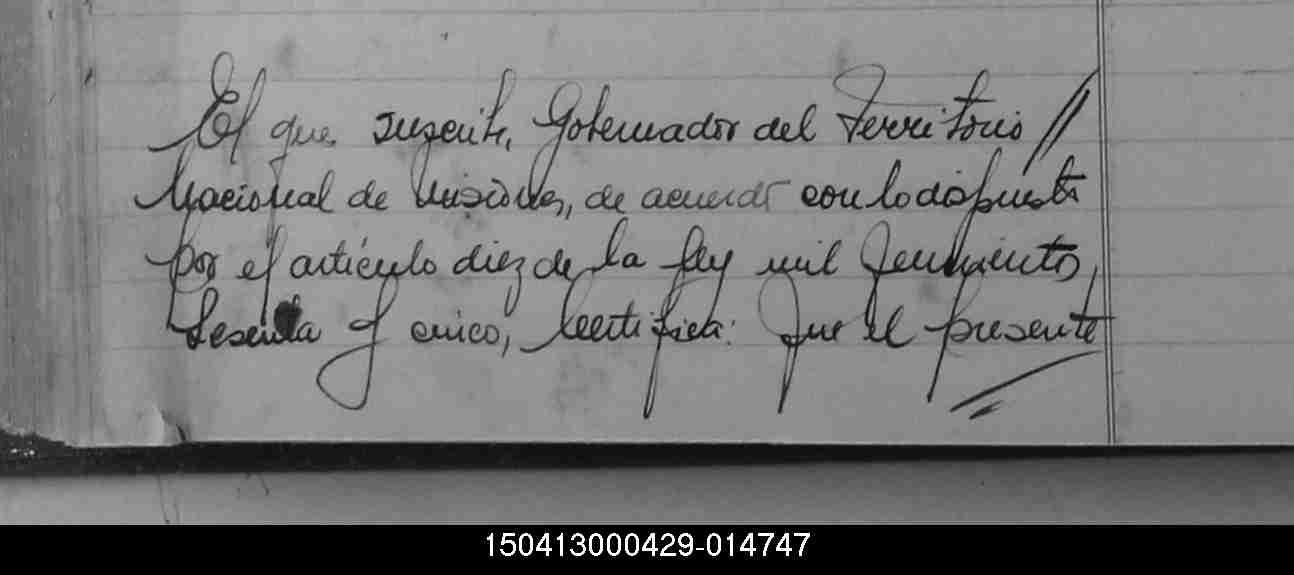 El que suscrite, Gobernador del Territorio //
Nacional de Misiones, de acuerdo con lo dispuesto
por el artículo diez de la Ley mil quinientos,
sesenta y cinco, Certifica: Que el presente
150413000429-014747